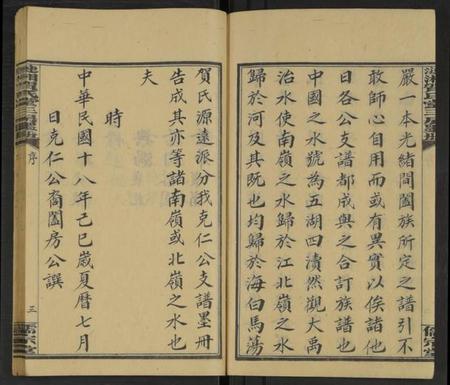 嚴一本光緒間闔族所定之譜引不
敢師心自用而或有異實以俟諸他
日各公支譜都成與之合訂族譜也
中國之水號為五湖四瀆然觀大禹
治水使南嶺之水歸於江北嶺之水
歸於河及其既也均歸於海白馬蕩
賀氏源遠派分我克仁公支譜墨冊
告成其亦等諸南嶺或北嶺之水也
夫
時
中華民國十八年己巳歲夏曆七月
日克仁公裔闔房公撰
序
三